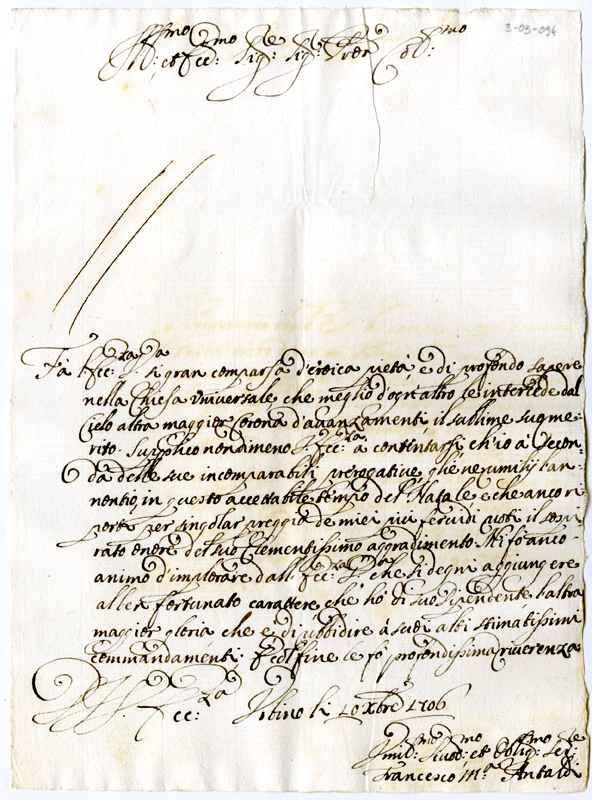 3-03-094
Ill:mo et Ecc:mo Sig:re Sig:re Prōn Col:mo
Fà l'Ecc:za V:ra si gran comparsa d'eroica pietà, e di profondo sapere
nella Chiesa Universale, che meglio d'ogn'altro le intercede dal
Cielo altra maggior Corona d'auanzamenti il sublime suo me-
rito. Supplico nondimeno l'Ecc:za V:ra à contentarsi, ch'io à secon-
da delle sue incomparabili prerogatiue glie ne umilij l'an-
nontio, in questo accettabile tempo del S. Natale, e che anco ri
porti per singolar preggio de miei più feruidi voti il sospi
rato onore del suo Clementissimo aggradimento. Mi fò anco
animo d'implorare dall'Ecc:za V:ra che si degni aggiungere
al ben fortunato carattere, che hò di suo Dipendente, l'altra
maggior gloria, che è di ubbidire à suoi alti stimatissimi
commandamenti; E col fine le fò profondissima riuerenza
Di V. Ecc:za Urbino li 10 Xbre 1706
Umil:mo Deuot:mo et Oblig:mo Ser:re
Francesco M:a Antaldi